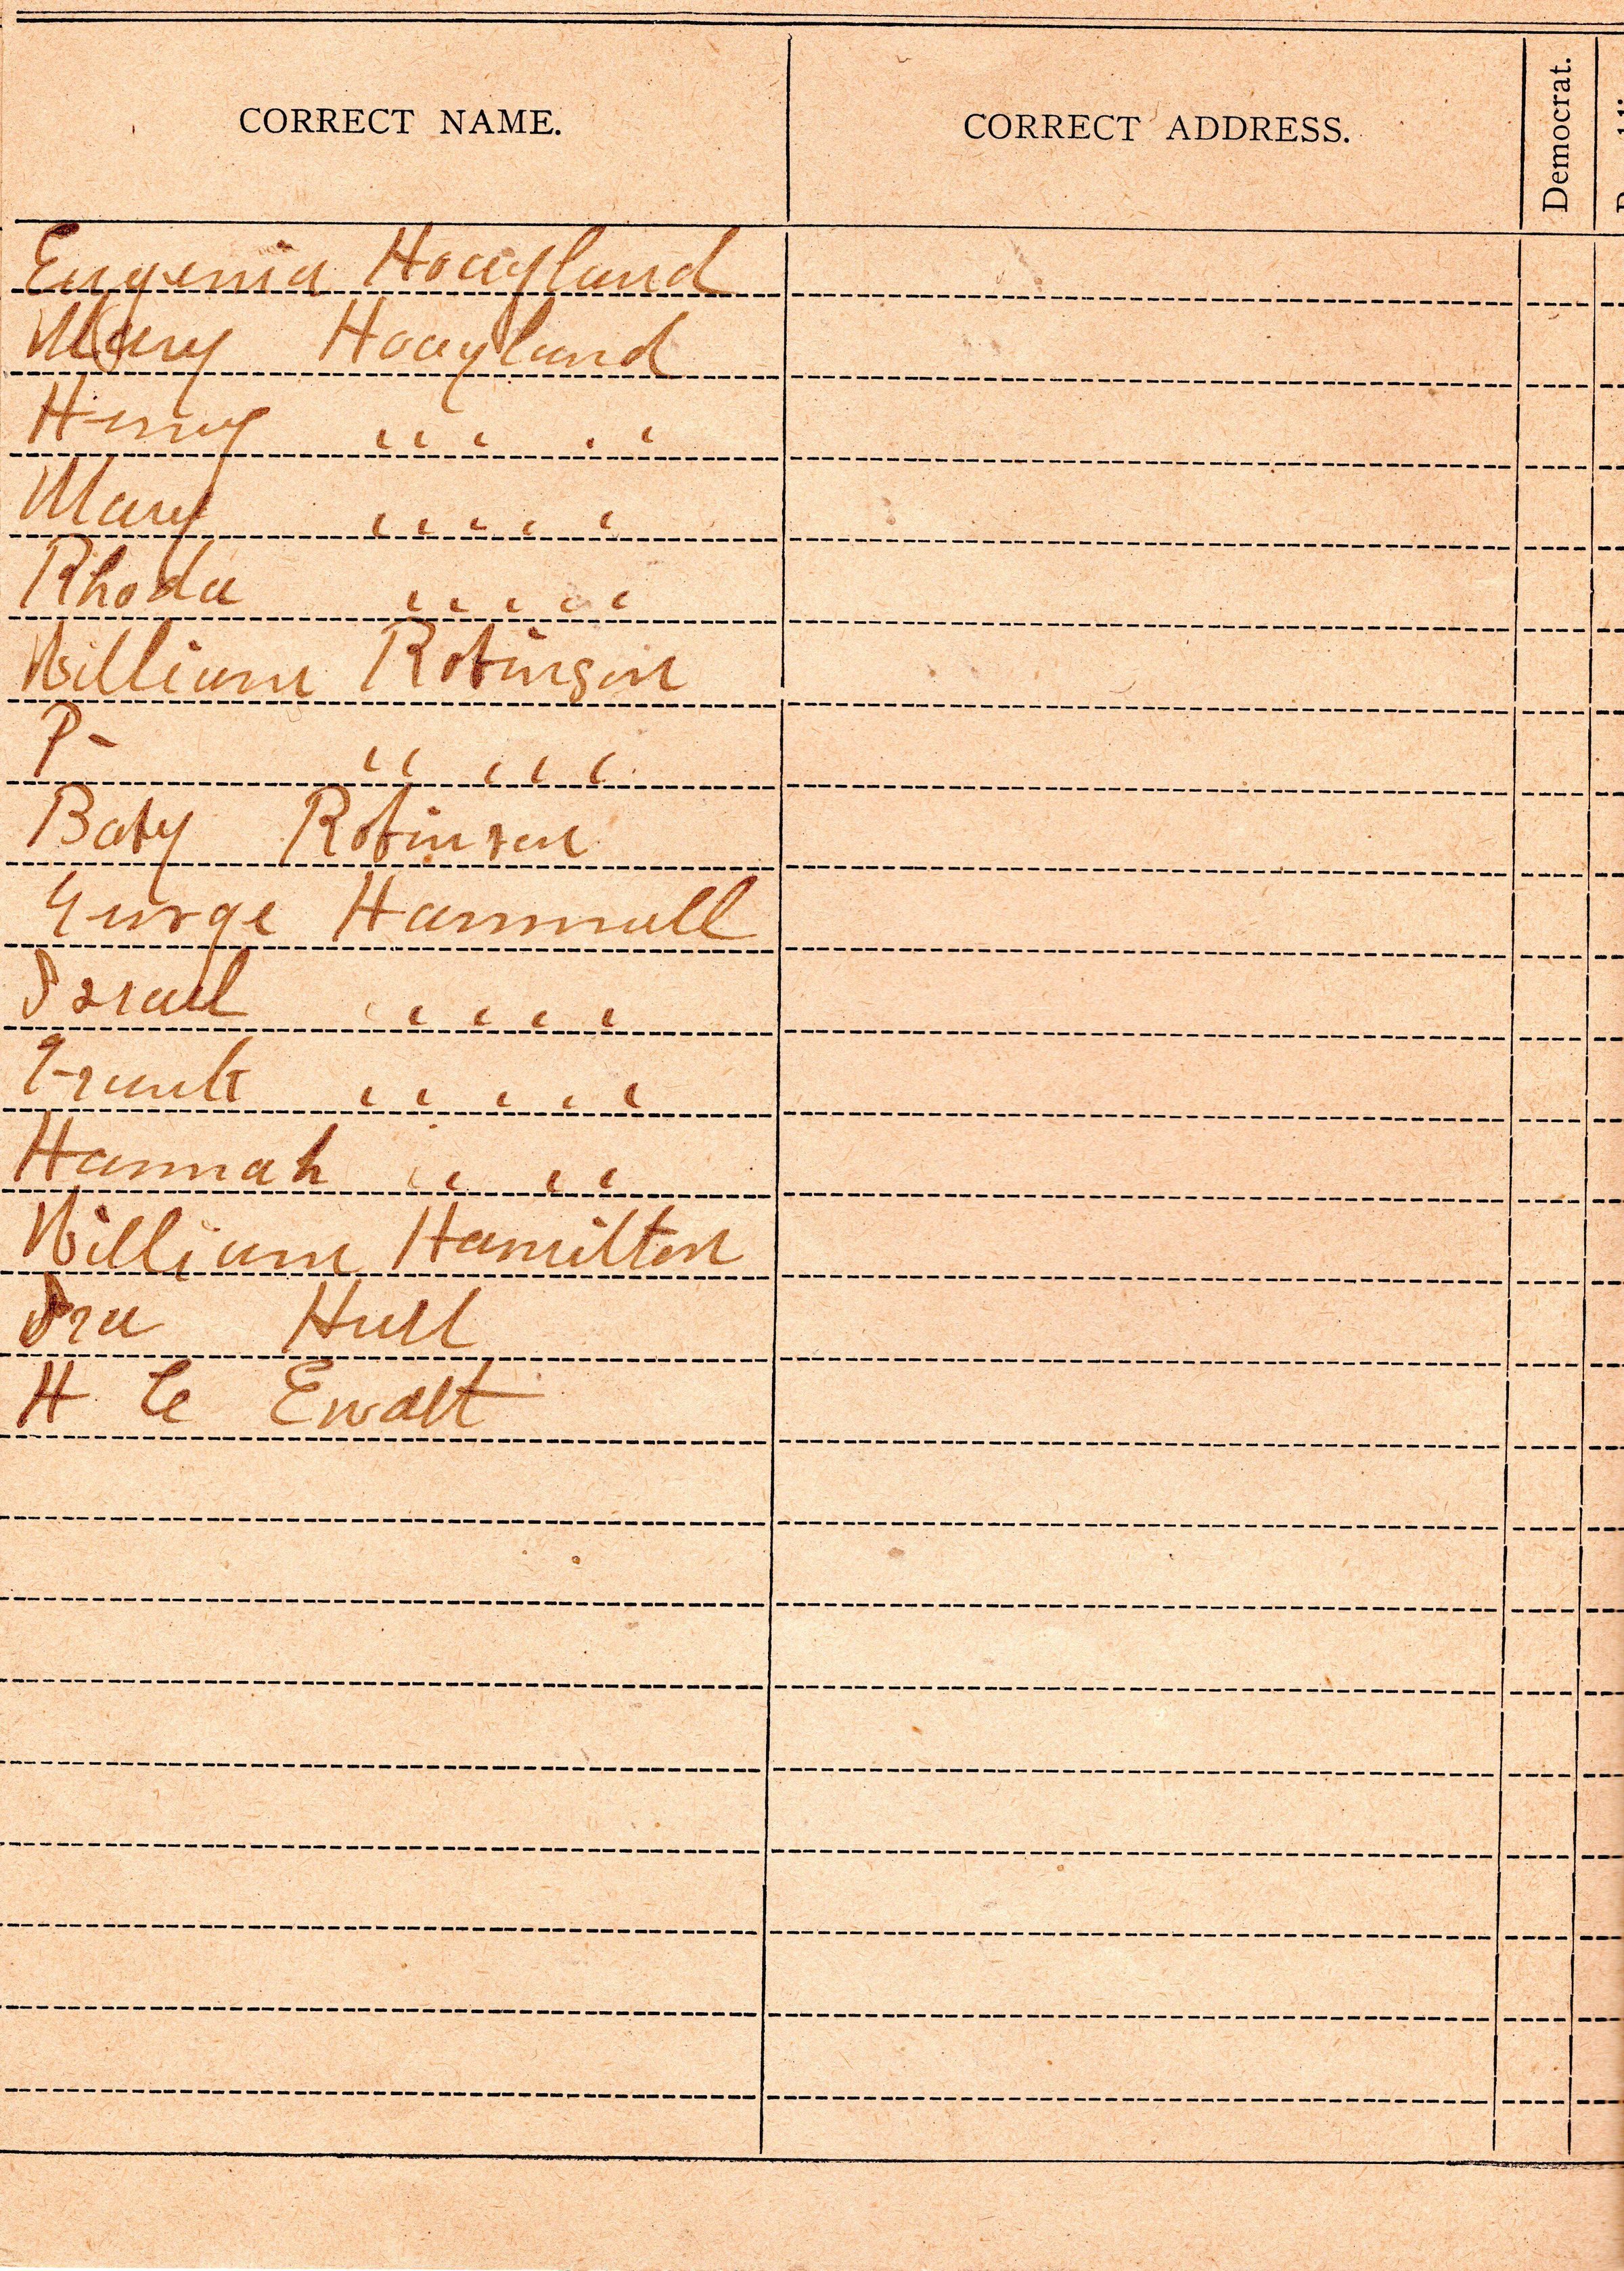 CORRECT NAME. CORRECT ADDRESS. Democrat.
Eugenia Hoagland
Mary Hoagland
Henry " " "
Mary " " "
Rhoda " " "
William Robinson
P- " " "
Baby Robinson
George Hammell
Israel " "
Frank " " "
Hannah " "
William Hamilton
Ira Hull
H C Ewalt